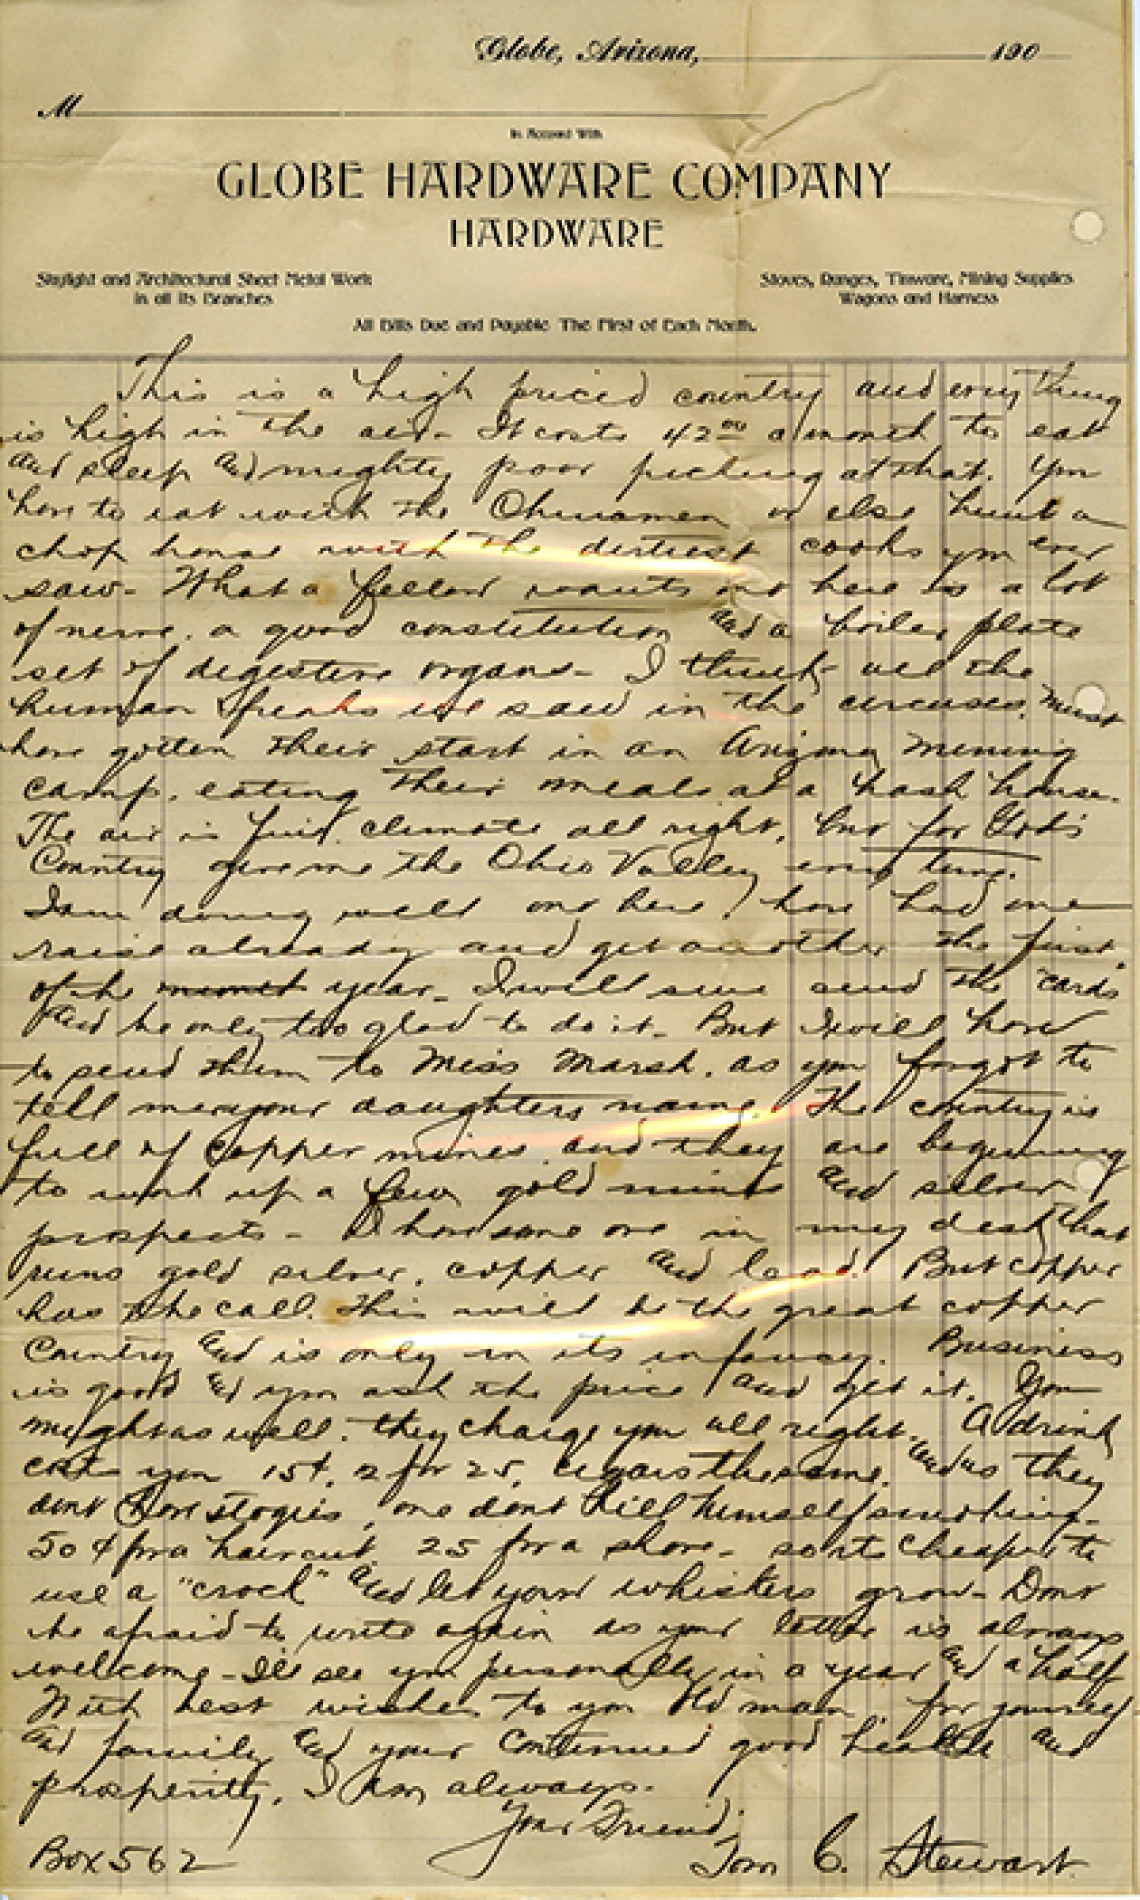 Globe, Arizona, 190
M
In Account With
GLOBE HARDWARE COMPANY
HARDWARE
Skylight and Architectural Sheet Metal Work
in all its Branches
Stoves, Ranges, Tinware, Mining Supplies
Wagons and Harness
All Bills Due and Payable The First of Each Month.
This is a high priced country and everything
is high in the air - It costs 42 00 a month to eat
and sleep and mighty poor picking at that. You
have to eat with the Chinamen or else hunt a
chop house with the dirtiest cooks you ever
saw - What a fellow wants out here is a lot
of nerve, a good constitution and a boiler plate
set of digestive organs - I think all the
human freaks we saw in the circuses must
have gotten their start in an Arizona mining
camp, eating their meals at a hash house.
The air is fine, climate all right, but for God's
Country give me the Ohio Valley every time.
I am doing well out here, I have had one
raise already and get another the first
of the month year - I will sure send the "cards"
and be only too glad to do it - But I will have
to send them to Miss Marsh, as you forgot to
tell me your daughters name. The country is
full of copper mines and they are beginning
to work up a few gold mines and silver
prospects - I have some ore in my desk that
runs gold silver, copper and lead. But copper
has the call. This will be the great copper
Country and is only in its infancy. Business
is good and you ask the price and get it. You
might as well. they charge you all right. A drink
cost you 15¢, 2 for 25, cigars the same. and as they
dont have stogies, one dont kill himself smoking -
50¢ for a haircut 25 for a shave - so its cheaper to
use a "crock" and let your whiskers grow - Dont
be afraid to write again as your letter is always
welcome - I'll see you personally in a year and a half
With best wishes to you Old man, for yourself
and family and your continued good health and
prosperity, I am always.
Your Friend,
Box 562 Tom C. Stewart.